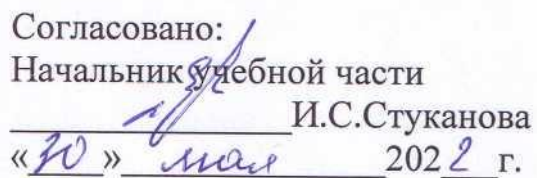 Согласовано:
Начальник учебной части
И.С.Стуканова
«30» мая 2022 г.